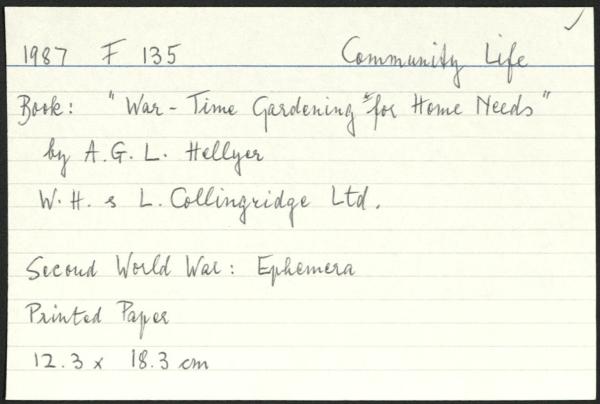 1987 F 135 Community Life
Book: "War-Time Gardening for Home Needs"
by A.G.L. Hellyer
W.H. & L. Collingridge Ltd.
Second World War: Ephemera
Printed Paper
12.3 x 18.3 cm